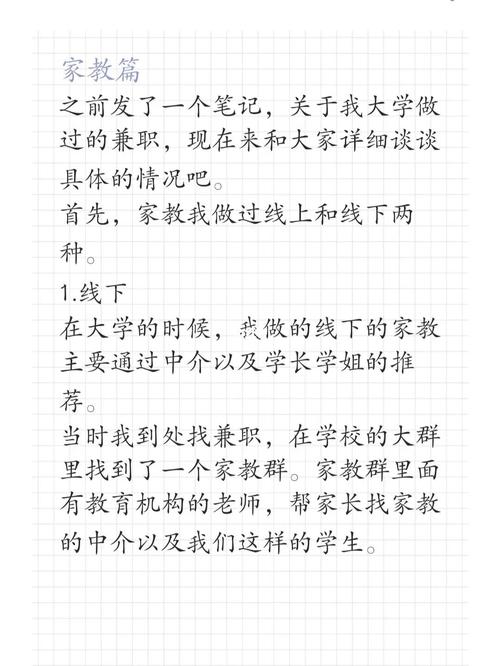 家教篇
之前发了一个笔记，关于我大学做
过的兼职，现在来和大家详细谈谈
具体的情况吧。
首先，家教我做过线上和线下两
种。
1.线下
在大学的时候，我做的线下的家教
主要通过中介以及学长学姐的推
荐。
当时我到处找兼职，在学校的大群
里找到了一个家教群。家教群里面
有教育机构的老师，帮家长找家教
的中介以及我们这样的学生。